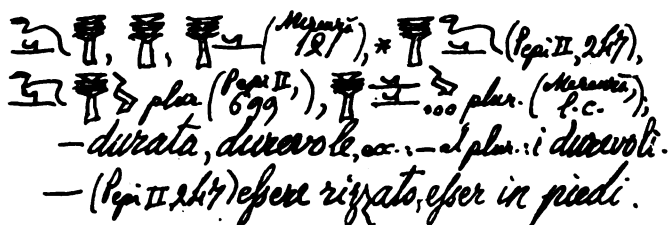 𓆓𓂧𓊽, 𓊽, 𓊽𓂧 (Merenrā 121), * 𓊽𓆓𓂧 (Pepi II, 247),
𓆓𓂧𓊽 plur (Pepi II, 699), 𓊽 plur. (Merenrā, l. c.),
— durata, durevole, ecc.: — al plur.: i durevoli.
— (Pepi II 247) essere rizzato, esser in piedi.